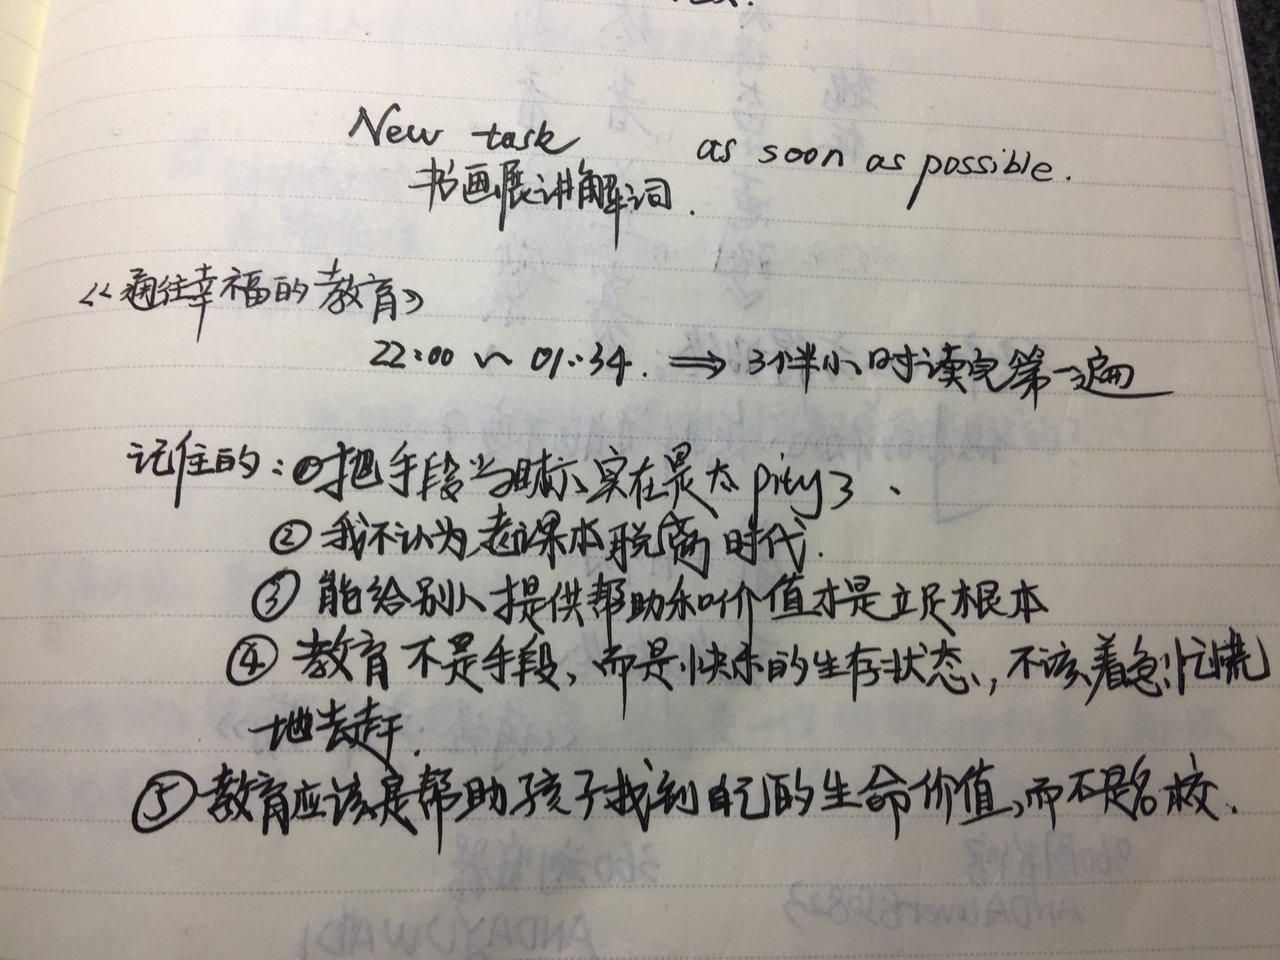 New task as soon as possible.
书画展讲解词.
《通往幸福的教育》
22:00 ~ 01:34. ⇒ 3个半小时读完第一遍
记住的: ①把手段当目标、实在是太pity了、
② 我不认为老课本脱离时代.
③ 能给别人提供帮助和价值才是立足根本
④ 教育不是手段,而是快乐的生存状态,不该着急忙慌
地去赶.
⑤ 教育应该是帮助孩子找到自己的生命价值,而不是名校.